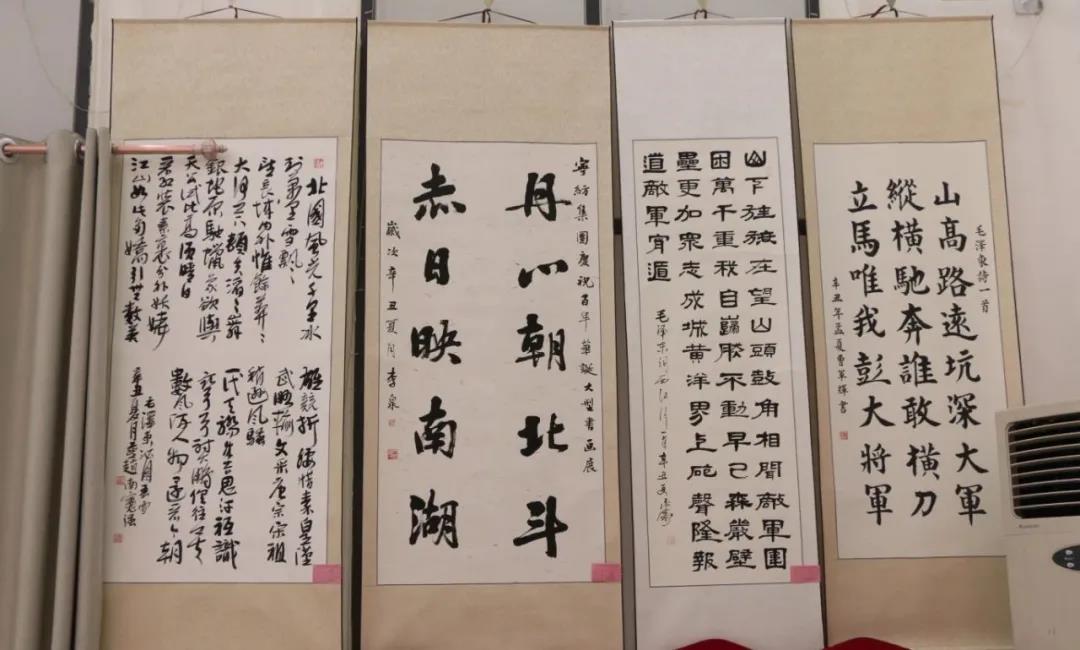 北國風光千里冰
封萬里雪飄
望長城內外惟餘莽莽
大河上下頓失滔滔山舞
銀蛇原馳蠟象欲與
天公試比高須晴日
看紅裝素裹分外妖嬈
江山如此多嬌引無數英
雄競折腰惜秦皇漢
武略輸文采唐宗宋祖
稍遜風騷
一代天驕成吉思汗祗識
彎弓射大鵰俱往矣
數風流人物還看今朝
毛澤東沁園春雪
寧紡集團慶祝百年華誕大型書画展
丹心朝北斗
赤日映南湖
歲次辛丑夏月李泉
山下旌旗在望山頭鼓角相聞敵軍圍
困萬千重我自巋然不動早已森嚴壁
壘更加眾志成城黃洋界上砲聲隆報
道敵軍宵遁
毛澤東詞西江月一首辛丑夏
毛澤東詩一首
山高路遠坑深大軍
縱橫馳奔誰敢橫刀
立馬唯我彭大將軍
辛丑年孟夏曹軍輝書